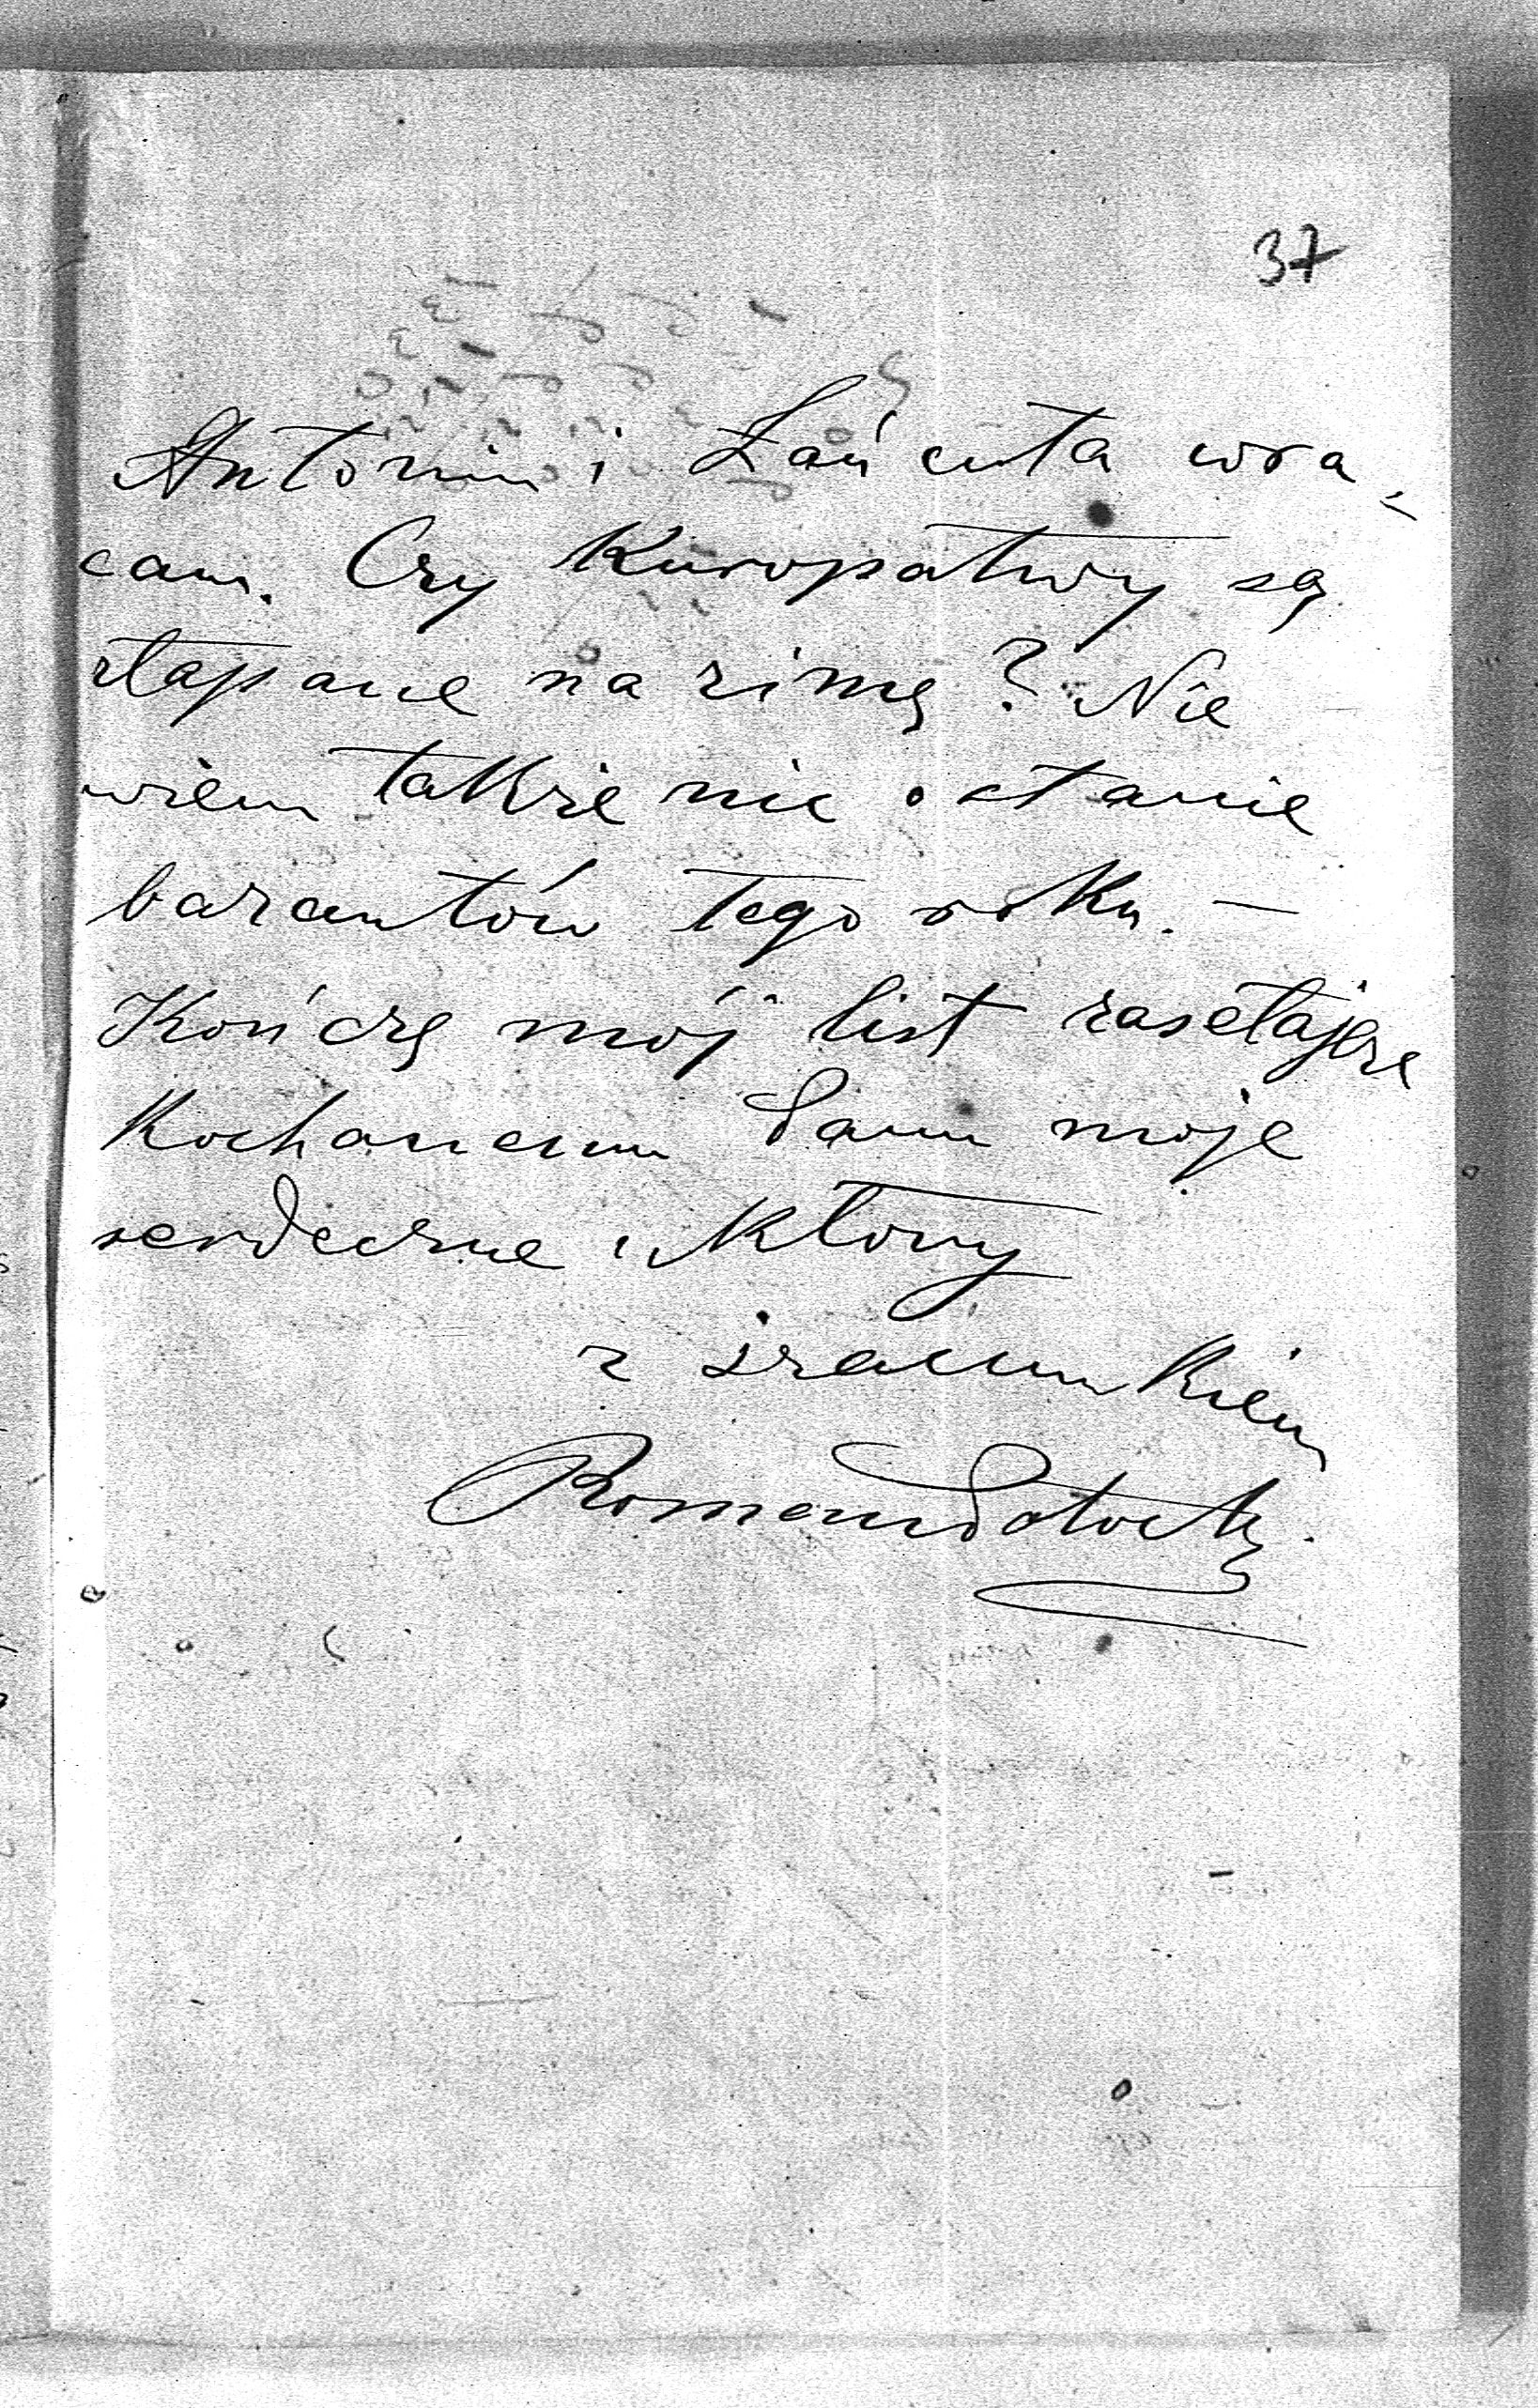 37
Antonin i Łańcuta wra-
cam. Czy Kuropatwy są
złapane na zimę? Nie
wiem także nic o stanie
bażantów tego roku. —
Kończę mój list zasełając
Kochanemu Panu moje
serdeczne ukłony
z szacunkiem
Roman Potocki.